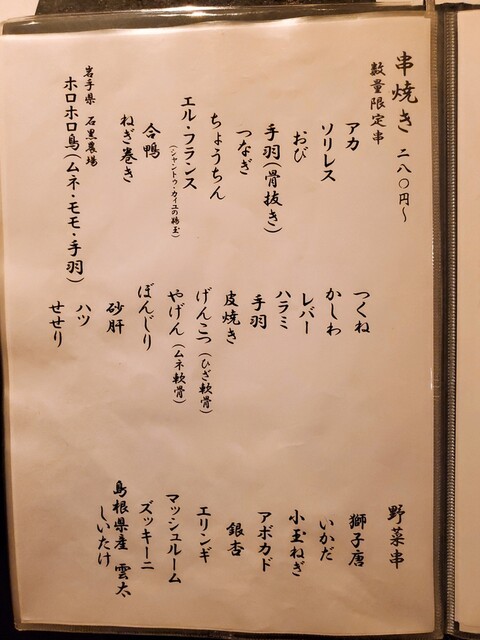 串焼き 二八〇円～
数量限定串
アカ
ソリレス
おび
手羽(骨抜き)
つなぎ
ちょうちん
エル・フランス
(シャントゥ・カイユの鶉玉)
合鴨
ねぎ巻き
岩手県 石黒農場
ホロホロ鳥(ムネ・モモ・手羽)
つくね
かしわ
レバー
ハラミ
手羽
皮焼き
げんこつ(ひざ軟骨)
やげん(ムネ軟骨)
ぼんじり
砂肝
ハツ
せせり
野菜串
獅子唐
いかだ
小玉ねぎ
アボカド
銀杏
エリンギ
マッシュルーム
ズッキーニ
島根県産 雲太
しいたけ